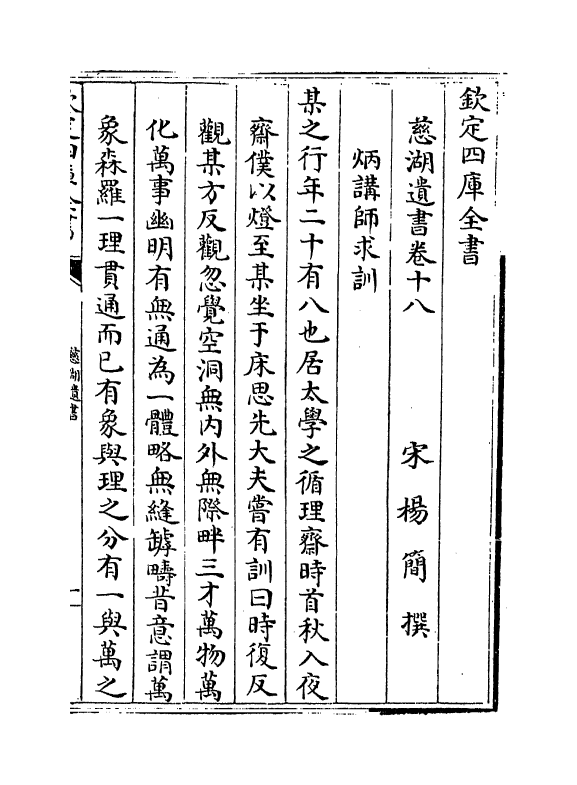 欽定四庫全書
慈湖遺書卷十八
宋 楊 簡 撰
炳講師求訓
某之行年二十有八也居太學之循理齋時首秋入夜
齋僕以燈至某坐于床思先大夫嘗有訓曰時復反
觀某方反觀忽覺空洞無内外無際畔三才萬物萬
化萬事幽明有無通為一體略無縫罅疇昔意謂萬
象森羅一理貫通而已有象與理之分有一與萬之
慈湖遺書
一